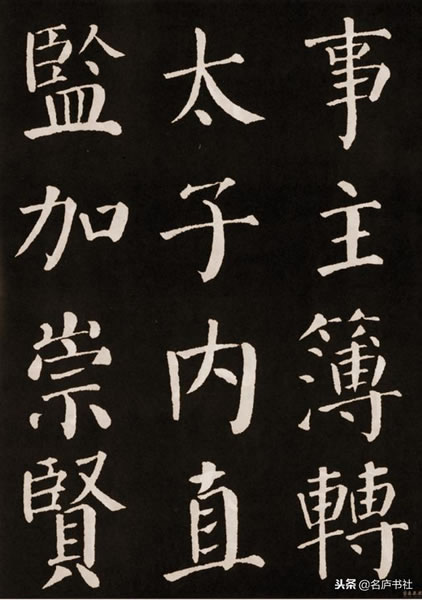 事主簿轉
太子内直
監加崇賢
头条 @名庐书社